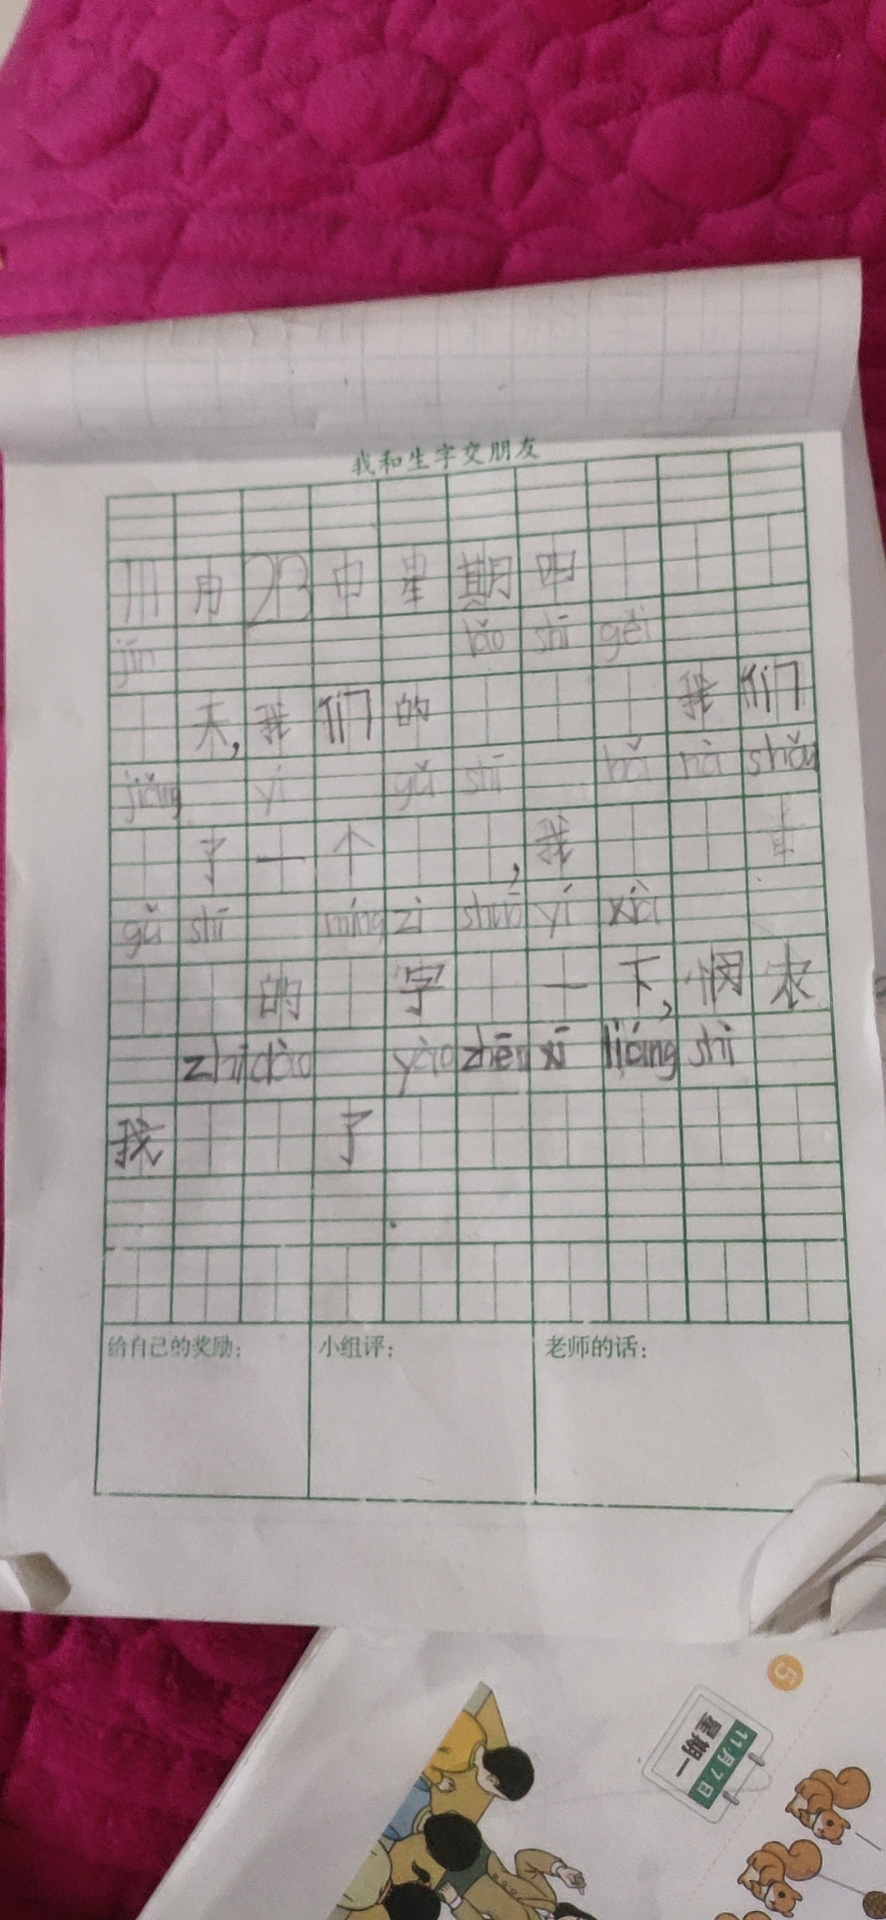 我和生字交朋友
11月23日星期四
jīn lǎo shī gěi
天,我们的 我们
jiǎng yí gǔ shī bǎ nà shǒu
了一个 ,我
gǔ shī míng zì shuō yí xià
的 字 一下,悯农
zhīdào yào zhēn xī liáng shi
我 了
给自己的奖励: 小组评: 老师的话:
5
11月7日
星期一